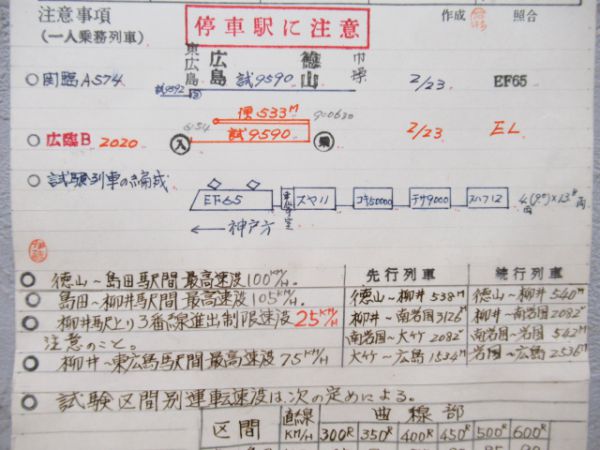 注意事項
(一人乗務列車)
停車駅に注意
作成 照合
東広島 広島 徳山
○関臨A574 試9592 試9590 2/23 EF65
便533M
○広臨B 2020 入 試9590 乗 2/23 EL
○試験列車の編成
EF65 スヤ11 コキ50000 チサ9000 スハフ12
← 神戸方
○ 徳山~島田駅間 最高速度100KM/H.
○ 島田~柳井駅間 最高速度105KM/H.
○ 柳井駅上り3番線進出制限速度25KM/H
注意のこと。
○ 柳井~東広島駅間 最高速度75KM/H
先行列車 続行列車
徳山~柳井 538M 徳山~柳井 540M
柳井~南岩国 3126M 柳井~南岩国 2082
南岩国~大竹 2082 南岩国~岩国 542M
大竹~広島 1534M 岩国~広島 2536M
○ 試験区間別運転速度は、次の定めによる。
区間 直線KM/H 曲線部
300R 350R 400R 450R 500R 600R